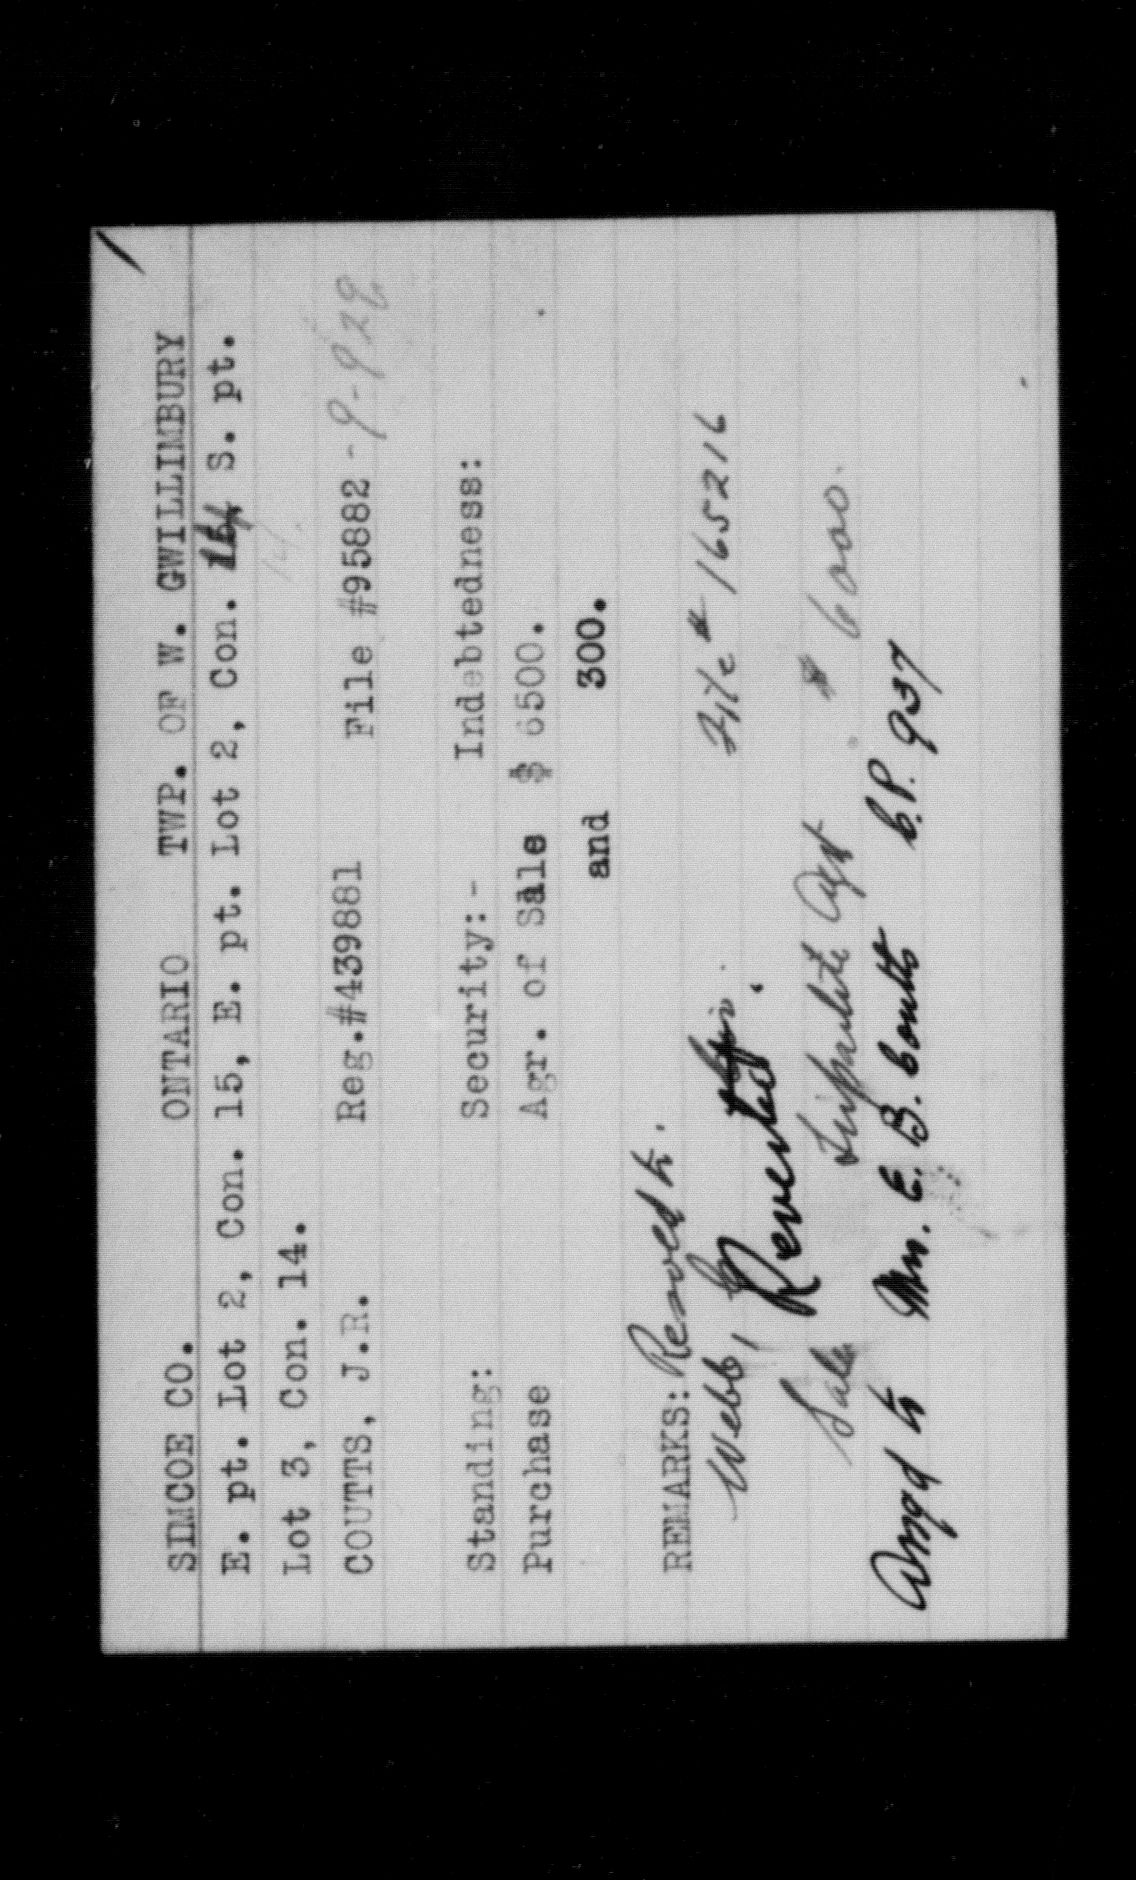 SIMCOE CO. ONTARIO TWP. OF W. GWILLIMBURY
E. pt. Lot 2, Con. 15, E. pt. Lot 2, Con. S. pt.
14.
Lot 3, Con. 14.
COUTTS, J.R. Reg.#439881 File #95882 - 9-9 29
Standing: Security:- Indebtedness:
Purchase Agr. of Sale $ 6500.
and 300.
REMARKS: Resold to.
Webb, File # 165216
Reverted.
Sale Tripartite Agt $ 6000.
Assgd to Mrs. E. B. Coutts C.P. 937